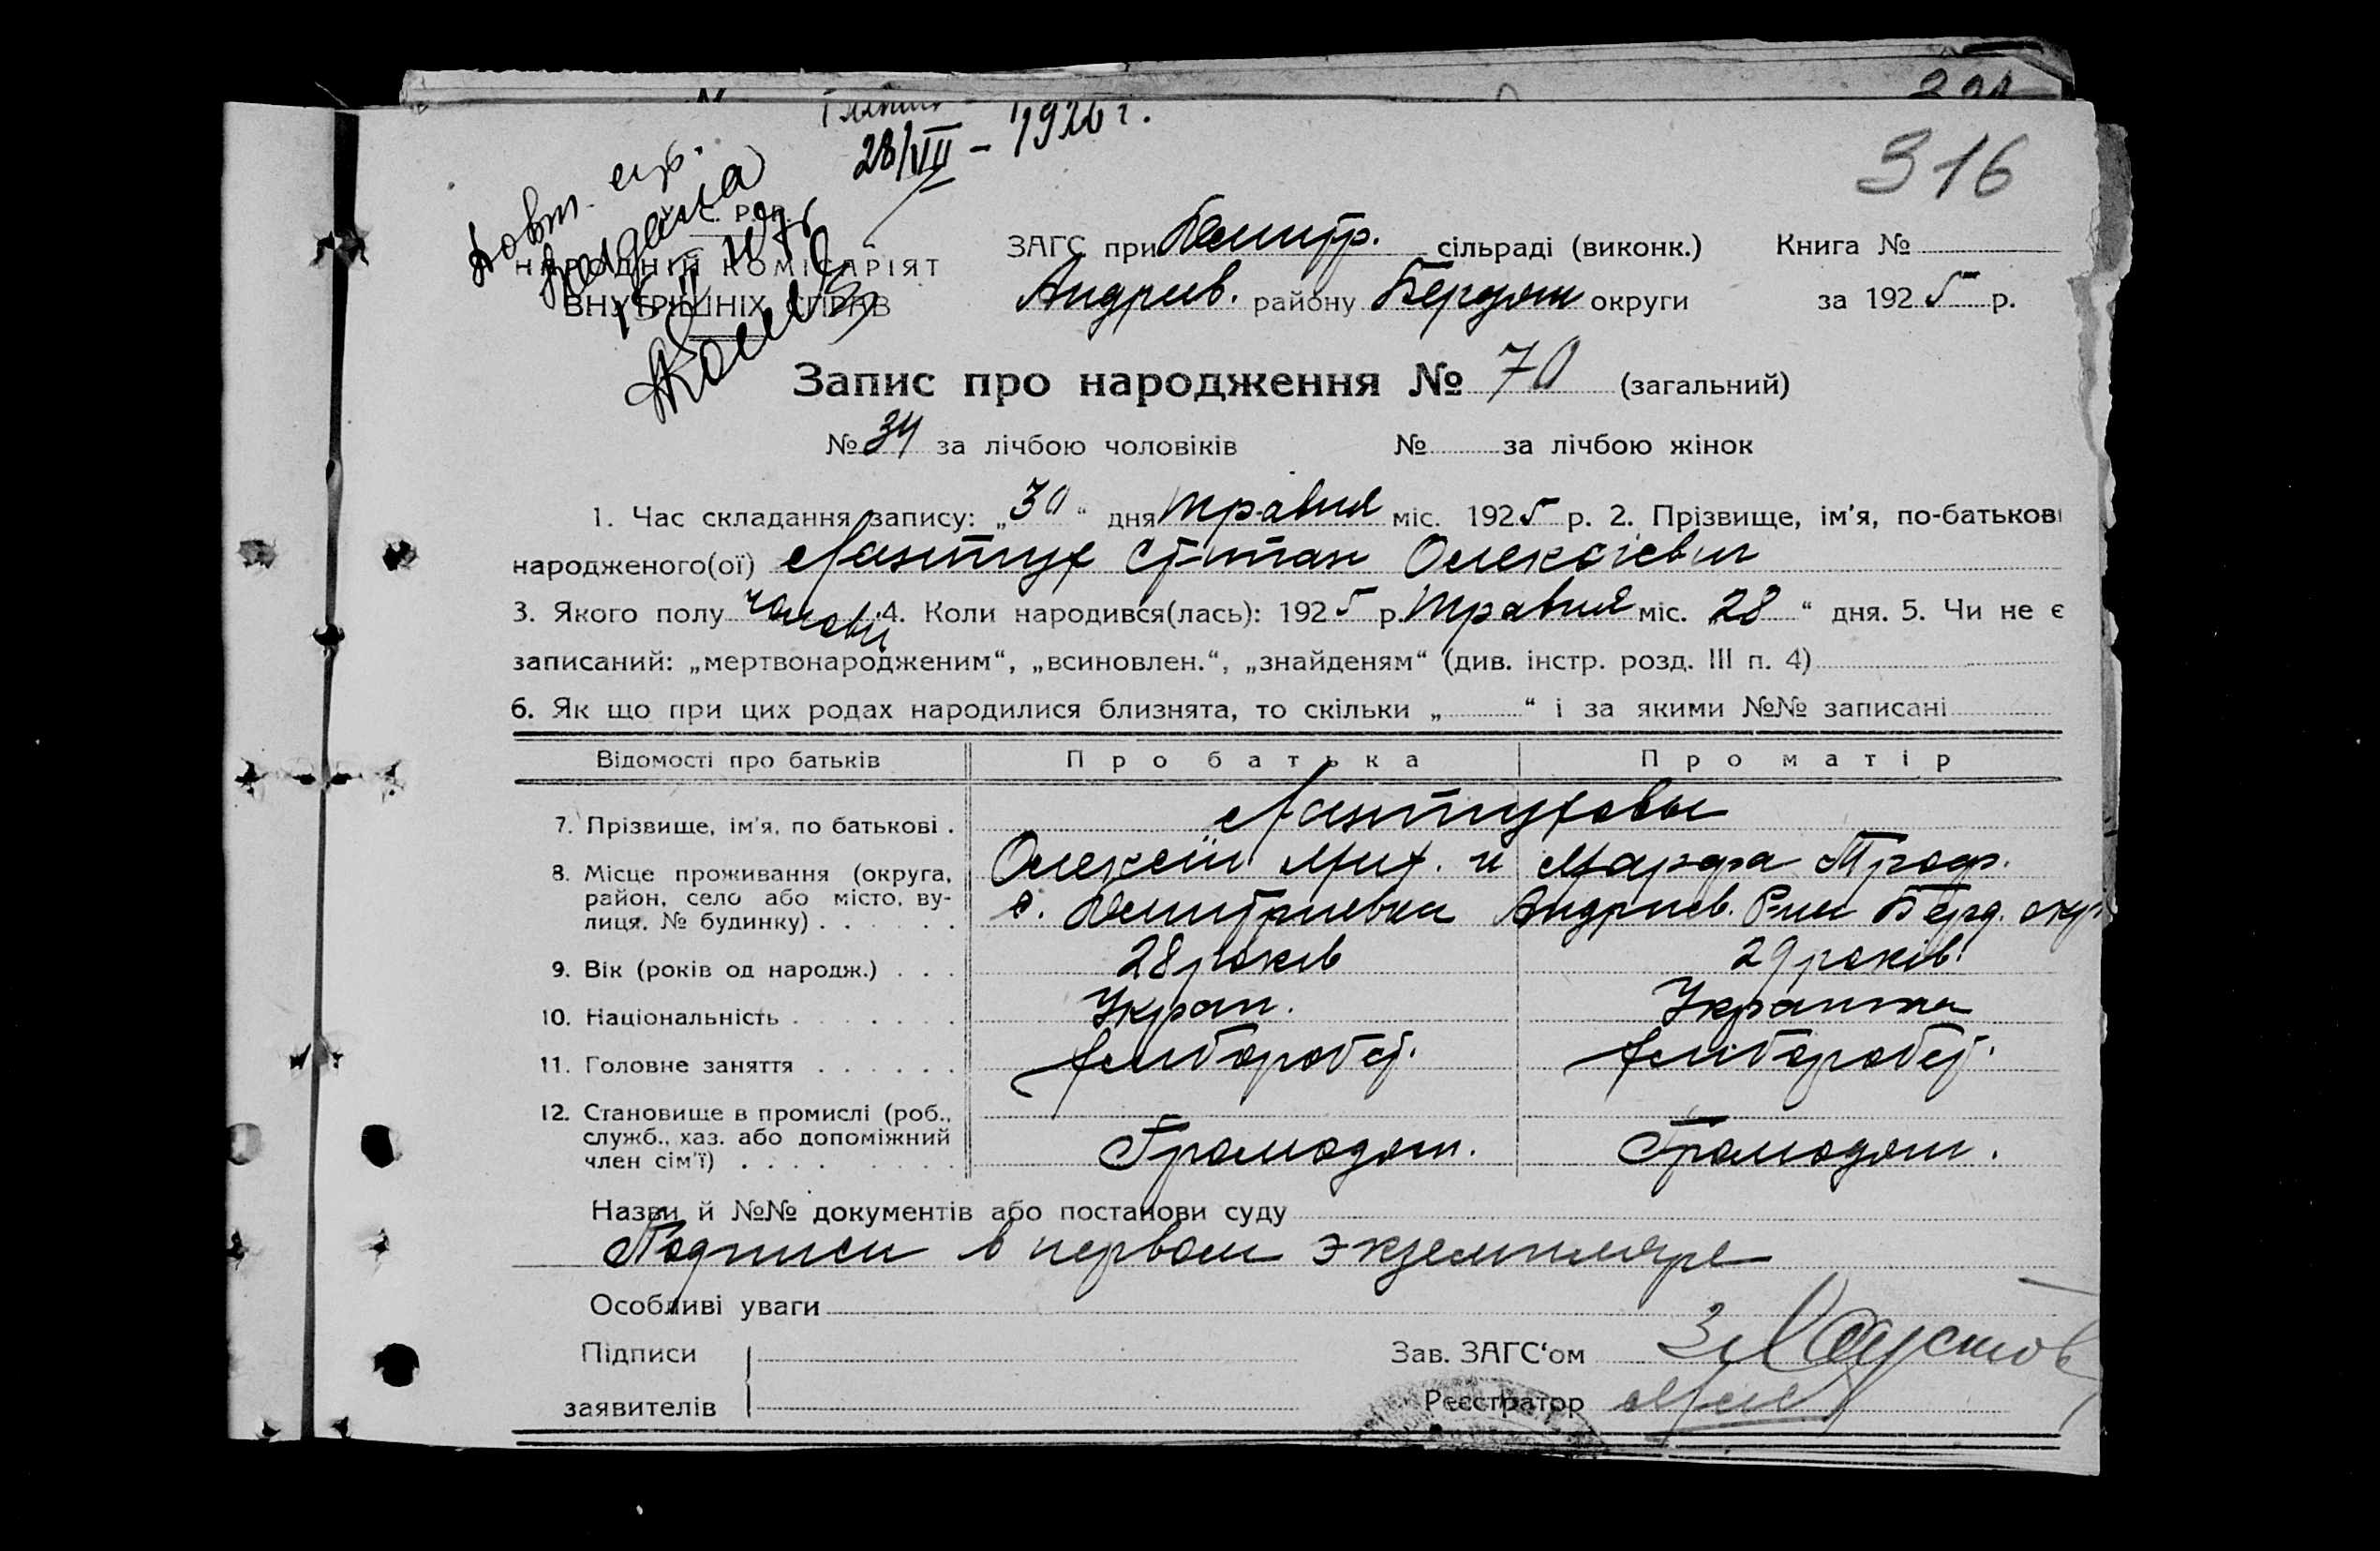 28/VII - 1926 г.
316
Р.
НАРОДНІЙ КОМІСАРІЯТ
ВНУТРІШНІХ СПРАВ
ЗАГС при Дмитр. сільраді (виконк.) Книга №
Андриев. району Бердян округи за 1925 р.
Запис про народження № 70 (загальний)
№ 34 за лічбою чоловіків № за лічбою жінок
1. Час складання запису: „30“ дня травня міс. 1925 р. 2. Прізвище, ім'я, по-батькові
народженого(ої) Лантух Степан Олексієвич
3. Якого полу чоловіч 4. Коли народився(лась): 1925 р. травня міс. 28 “ дня. 5. Чи не є
записаний: „мертвонародженим“, „всиновлен.“, „знайденям“ (див. інстр. розд. III п. 4)
6. Як що при цих родах народилися близнята, то скільки „ “ і за якими №№ записані
Відомості про батьків Про батька Про матір
7. Прізвище, ім'я, по батькові . Лантуховы
8. Місце проживання (округа, Олексій Мих. и Марфа Троф.
район, село або місто, ву- с. Дмитриевка Андриев. Р-ну Берд. окр
лиця, № будинку)
9. Вік (років од народж.) 28 років 29 років
10. Національність Украп. Украинка
11. Головне заняття хлібороб. хлібороб.
12. Становище в промислі (роб.,
служб., хаз. або допоміжний Громадян. Громадян.
член сім'ї)
Назви й №№ документів або постанови суду
Подписи в первом экземпляре
Особливі уваги
Підписи Зав. ЗАГС‘ом
заявителів Реєстратор